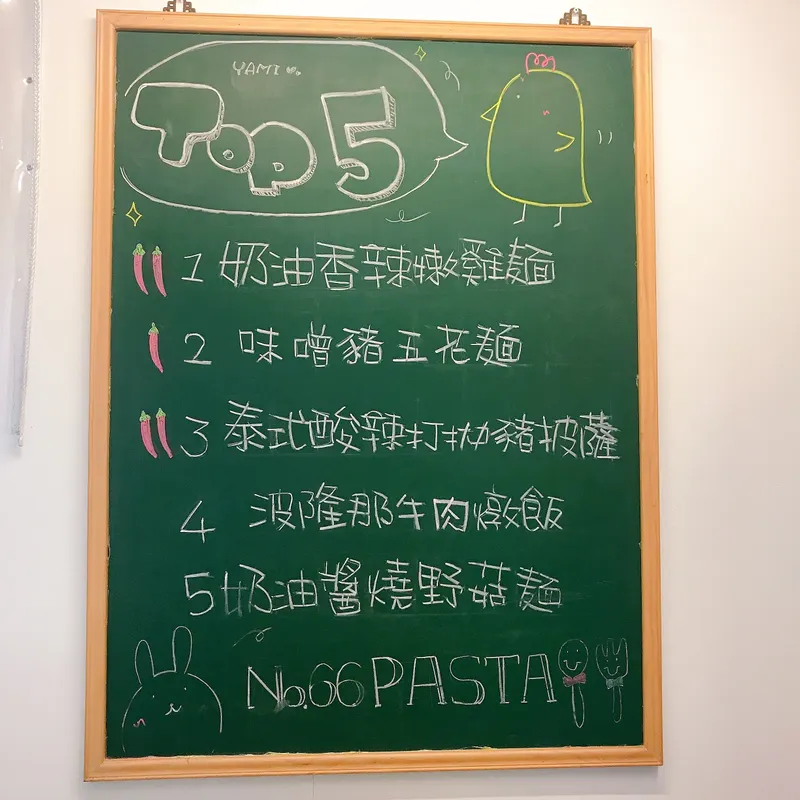 YAMI
TOP 5
1 奶油香辣嫩雞麵
2 味噌豬五花麵
3 泰式酸辣打拋豬披薩
4 波隆那牛肉燉飯
5 奶油醬燒野菇麵
No.66 PASTA